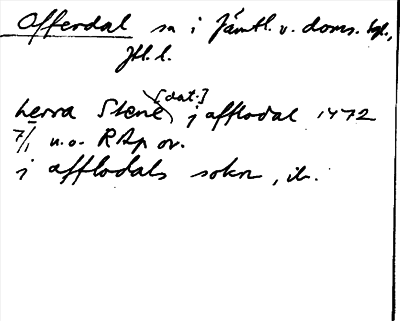 Offerdal sn i Jämtl. v. doms. hgl.,
Jtl. l.
herra Stene [dat.] j afflodal 1472
7/1 u.o. RAp or.
j afflodals sokn, ib.